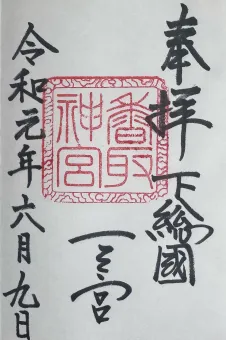 奉拝
下總國
一之宮
香取
神宮
令和元年六月九日